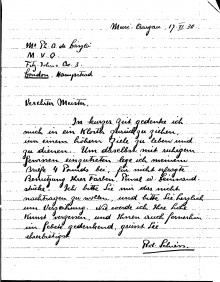 Muri. Aargau 17. VI. 30
Mr Ph. A. de László
M V O
Fitz Johns Av. 3.
London. Hampstead
Verehrter Meister,
In kurzer Zeit gedenke ich
mich in ein Kloster zurück zu ziehen,
um einem höhern Ziele zu leben und
zu dienen. Um daselbst mit ruhigem
Gewissen einzutreten lege ich meinem
Briefe 4 Pounds bei, für nicht erlaubte
Benützung Ihrer Farben, Pinsel u. Leinwand
stücke. Ich bitte Sie mir das nicht
nachtragen zu wollen, und bitte Sie herzlich
um Verzeihung. Nie werde ich Ihre hohe
Kunst vergessen, und Ihrer auch fernerhin
im Gebete gedenkend, grüsst Sie
ehrerbietigst